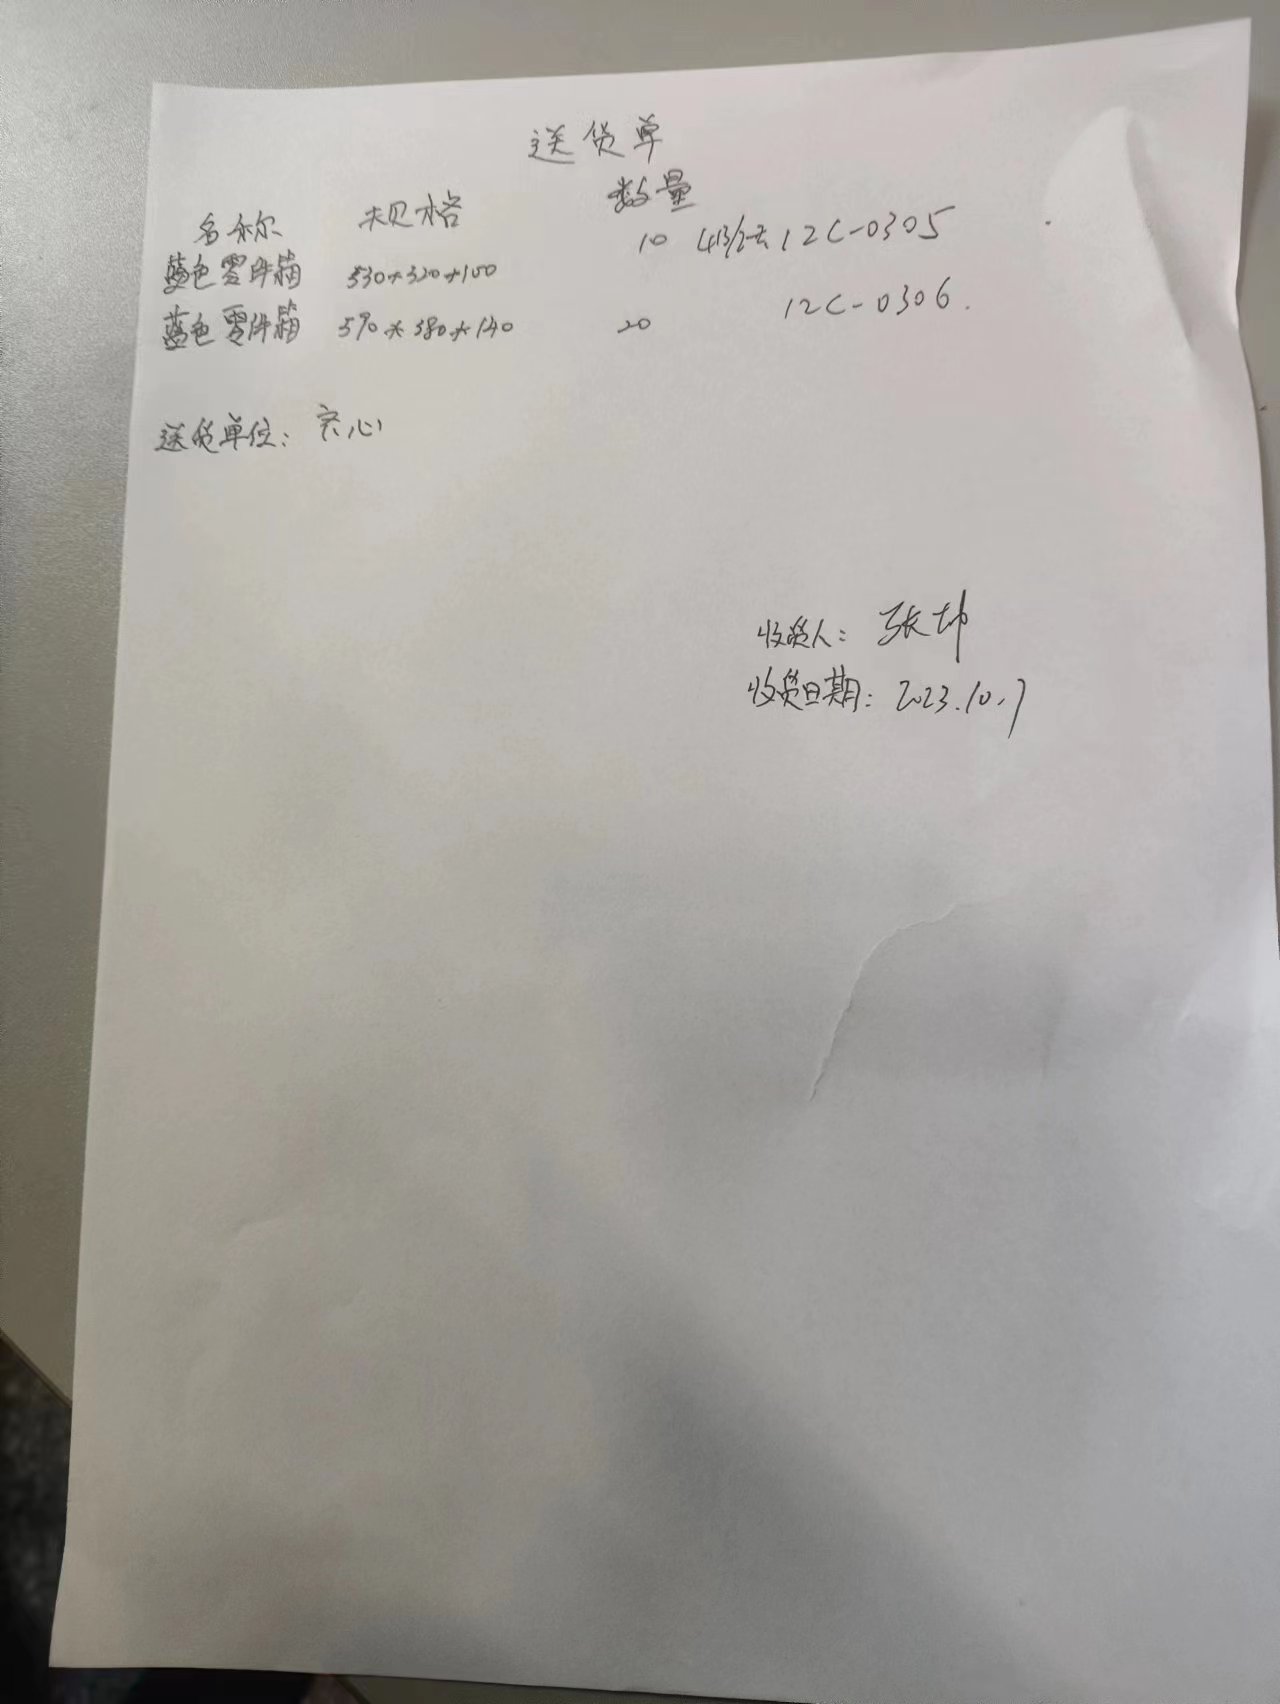 送货单
名称 规格 数量
蓝色零件箱 530*320*100 10 12C-0305
蓝色零件箱 590*380*140 20 12C-0306.
送货单位: 实心
收货人: 张坤
收货日期: 2023.10.7